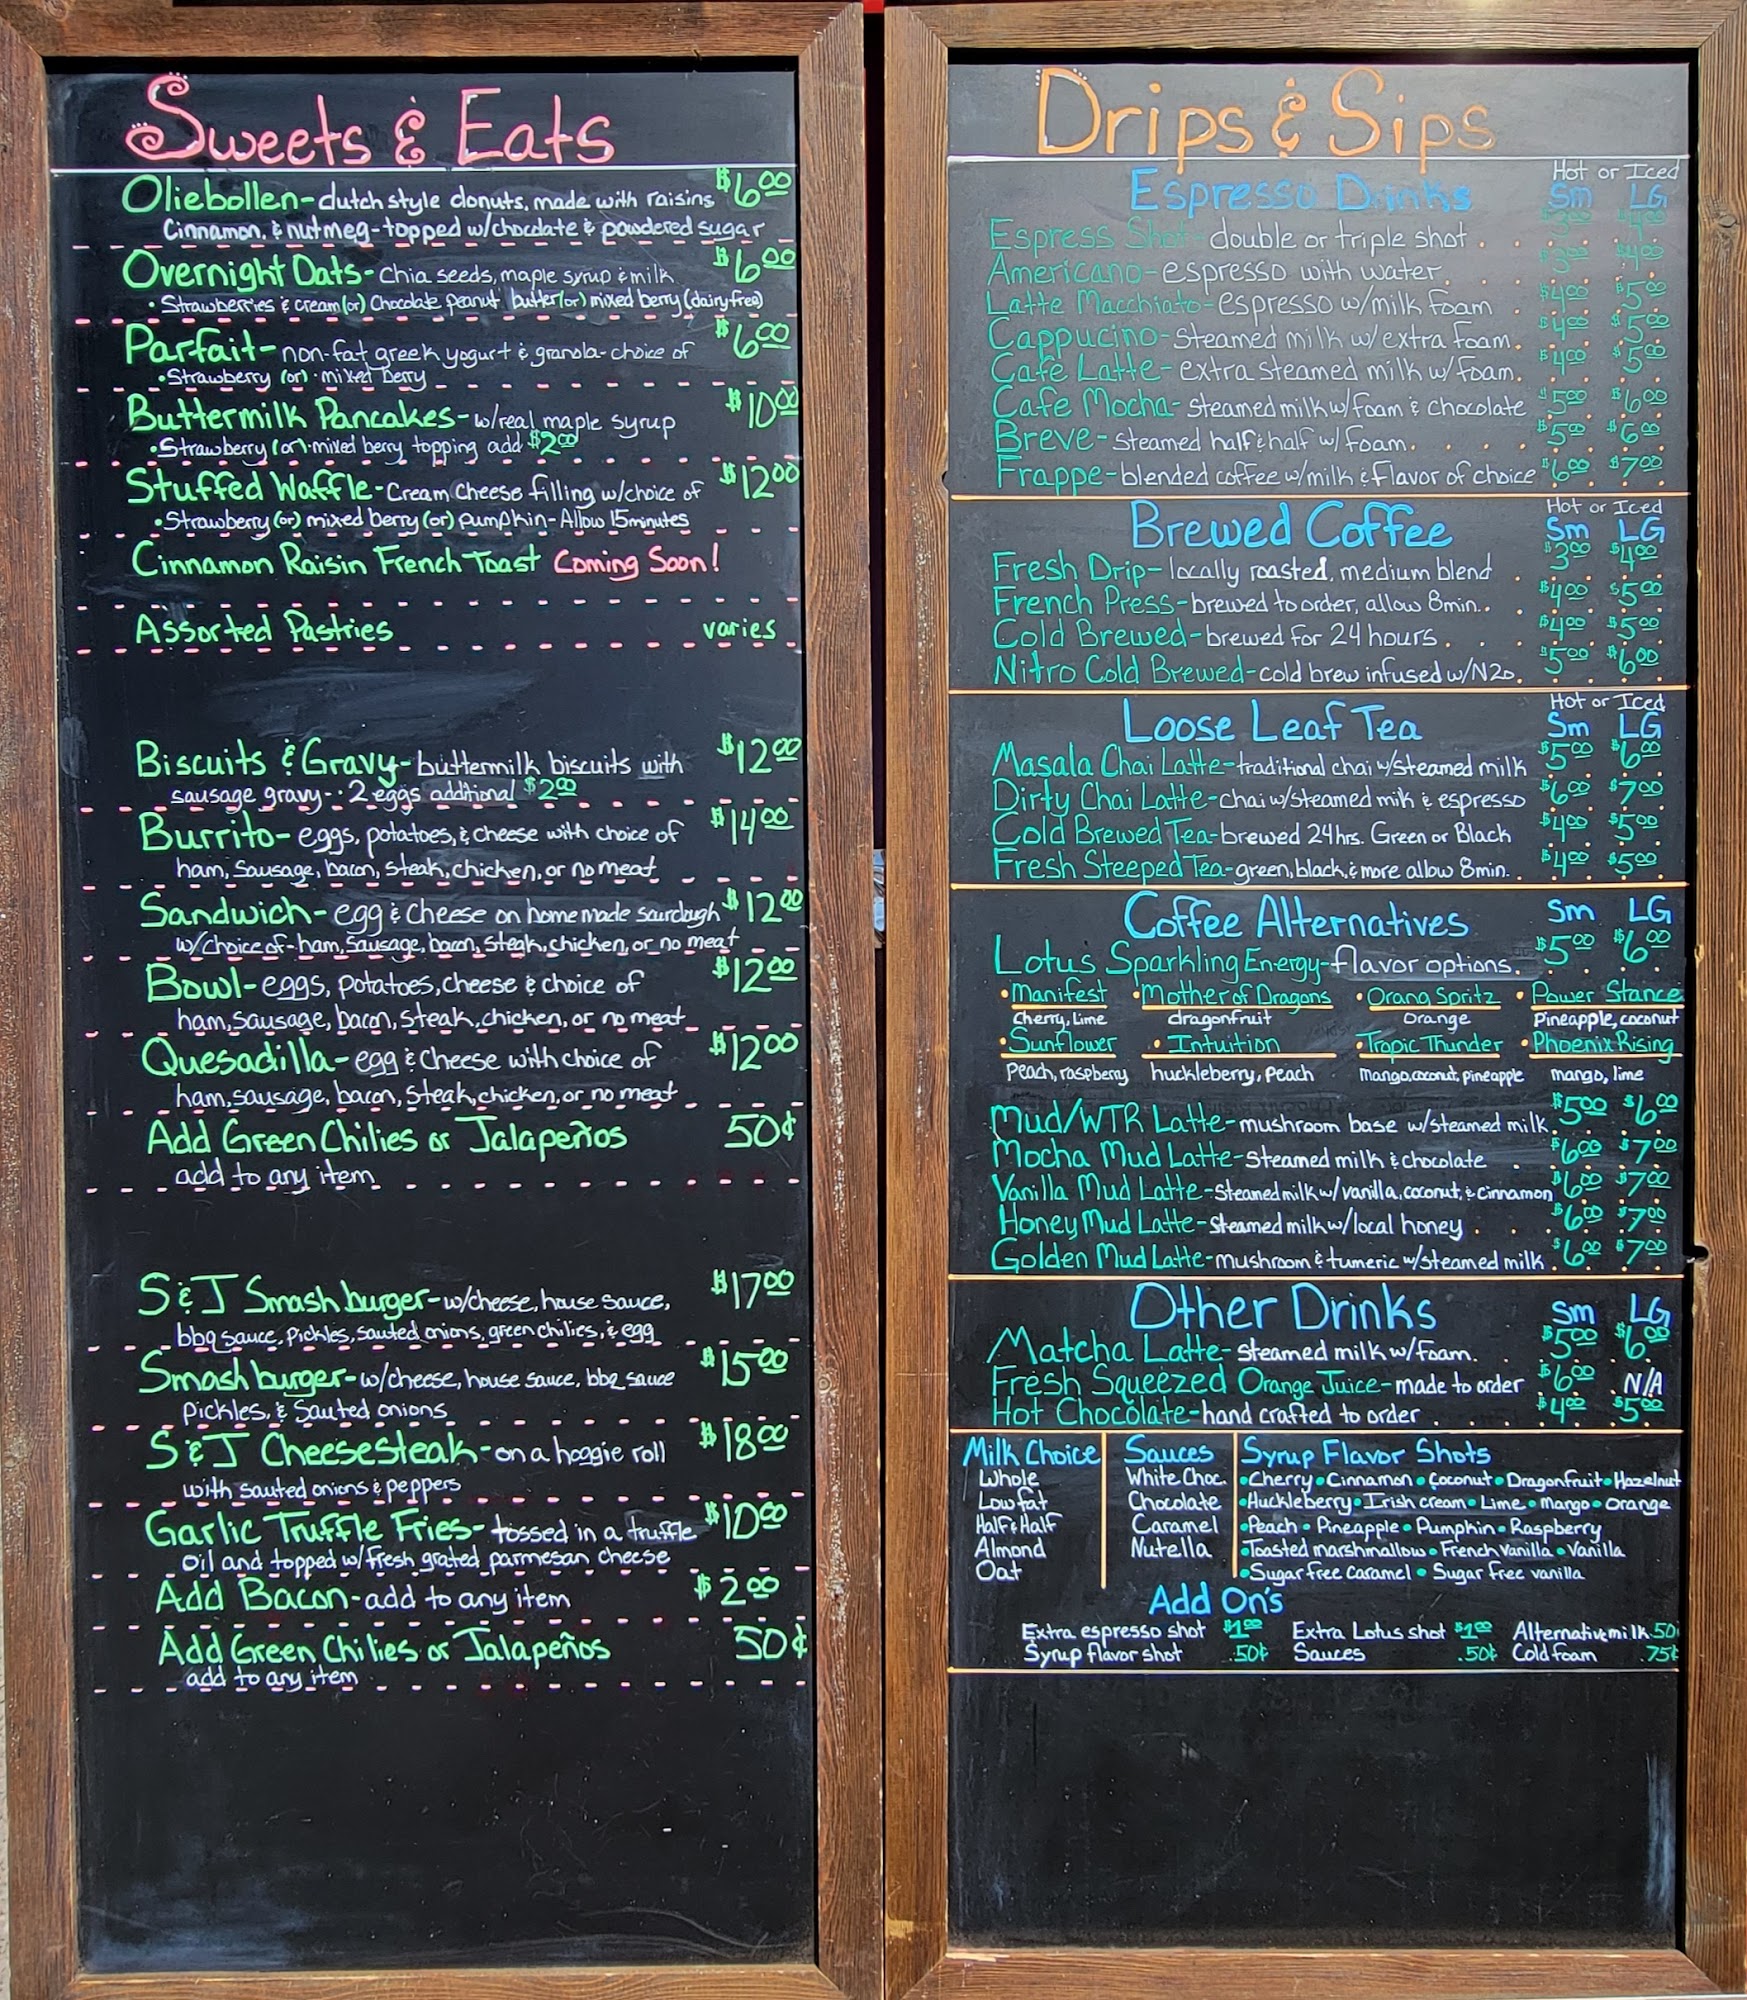 Sweets & Eats
Oliebollen - dutch style donuts, made with raisins $6.00
Cinnamon, & nutmeg - topped w/chocolate & powdered sugar
Overnight Oats - Chia seeds, maple syrup & milk $6.00
• Strawberries & cream (or) Chocolate peanut butter (or) mixed berry (dairy free)
Parfait - non-fat greek yogurt & granola - choice of $6.00
• Strawberry (or) • mixed berry
Buttermilk Pancakes - w/real maple syrup $10.00
• Strawberry (or) • mixed berry topping add $2.00
Stuffed Waffle - Cream Cheese filling w/choice of $12.00
• Strawberry (or) mixed berry (or) pumpkin - Allow 15 minutes
Cinnamon Raisin French Toast Coming Soon!
Assorted Pastries varies
Biscuits & Gravy - buttermilk biscuits with $12.00
sausage gravy - • 2 eggs additional $2.00
Burrito - eggs, potatoes, & cheese with choice of $14.00
ham, sausage, bacon, steak, chicken, or no meat
Sandwich - egg & cheese on homemade sourdough $12.00
w/choice of - ham, sausage, bacon, steak, chicken, or no meat
Bowl - eggs, potatoes, cheese & choice of $12.00
ham, sausage, bacon, steak, chicken, or no meat
Quesadilla - egg & cheese with choice of $12.00
ham, sausage, bacon, steak, chicken, or no meat
Add Green Chilies or Jalapeños 50¢
add to any item
S & J Smash burger - w/cheese, house sauce, $17.00
bbq sauce, pickles, sauted onions, green chilies, & egg
Smash burger - w/cheese, house sauce, bbq sauce $15.00
pickles, & sauted onions
S & J Cheesesteak - on a hoagie roll $18.00
with sauted onions & peppers
Garlic Truffle Fries - tossed in a truffle $10.00
oil and topped w/fresh grated parmesan cheese
Add Bacon - add to any item $2.00
Add Green Chilies or Jalapeños 50¢
add to any item
Drips & Sips
Hot or Iced
Espresso Drinks Sm LG
Espress Shot - double or triple shot . . $3.00 $4.00
Americano - espresso with water. $3.00 $4.00
Latte Macchiato - espresso w/milk foam . $4.00 $5.00
Cappucino - steamed milk w/extra foam. $4.00 $5.00
Cafe Latte - extra steamed milk w/foam. $4.00 $5.00
Cafe Mocha - steamed milk w/foam & chocolate $5.00 $6.00
Breve - steamed half & half w/foam. . . . $5.00 $6.00
Frappe - blended coffee w/milk & flavor of choice $6.00 $7.00
Hot or Iced
Brewed Coffee Sm LG
Fresh Drip - locally roasted, medium blend . $3.00 $4.00
French Press - brewed to order, allow 8min. . $4.00 $5.00
Cold Brewed - brewed for 24 hours . . . $4.00 $5.00
Nitro Cold Brewed - cold brew infused w/N2o. $5.00 $6.00
Hot or Iced
Loose Leaf Tea Sm LG
Masala Chai Latte - traditional chai w/steamed milk $5.00 $6.00
Dirty Chai Latte - chai w/steamed milk & espresso $6.00 $7.00
Cold Brewed Tea - brewed 24hrs. Green or Black $4.00 $5.00
Fresh Steeped Tea - green, black, & more allow 8min. . $4.00 $5.00
Coffee Alternatives Sm LG
Lotus Sparkling Energy - flavor options. $5.00 $6.00
• Manifest • Mother of Dragons • Orang Spritz • Power Stance
Cherry, Lime dragonfruit orange Pineapple, coconut
• Sunflower • Intuition • Tropic Thunder • Phoenix Rising
Peach, raspberry huckleberry, peach Mango, coconut, pineapple mango, lime
Mud/WTR Latte - mushroom base w/steamed milk. $5.00 $6.00
Mocha Mud Latte - steamed milk & chocolate . $6.00 $7.00
Vanilla Mud Latte - steamed milk w/vanilla, coconut, & cinnamon $6.00 $7.00
Honey Mud Latte - steamed milk w/local honey . . . $6.00 $7.00
Golden Mud Latte - mushroom & tumeric w/steamed milk . $6.00 $7.00
Other Drinks Sm LG
Matcha Latte - steamed milk w/foam. $5.00 $6.00
Fresh Squeezed Orange Juice - made to order $6.00 N/A
Hot Chocolate - hand crafted to order . . . $4.00 $5.00
Milk Choice Sauces Syrup Flavor Shots
Whole White Choc. • Cherry • Cinnamon • Coconut • Dragonfruit • Hazelnut
Low fat Chocolate • Huckleberry • Irish cream • Lime • mango • orange
Half & Half Caramel • Peach • Pineapple • Pumpkin • Raspberry
Almond Nutella • Toasted marshmallow • French Vanilla • Vanilla
Oat • Sugar free caramel • Sugar free vanilla
Add On's
Extra espresso shot $1.00 Extra Lotus shot $1.00 Alternative milk 50¢
Syrup flavor shot .50¢ Sauces .50¢ Cold foam .75¢